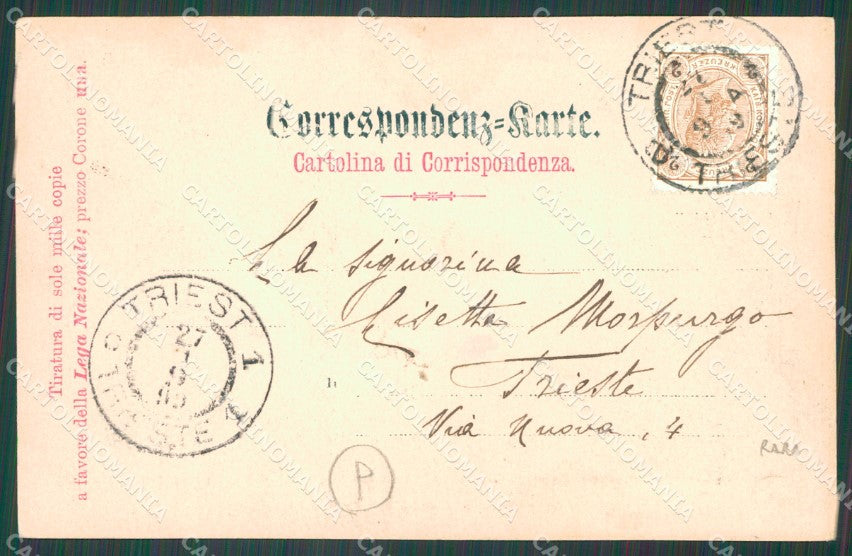 Correspondenz=Karte.
Cartolina di Corrispondenza.
La Signorina
Lisetta Morpurgo
Trieste
Via Nuova, 4
Tiratura di sole mille copie
a favore della Lega Nazionale; prezzo Corone una.
TRIEST 1
27
TRIESTE 1
TRIEST
TRIESTE
KREUZER
2
P
RARA
CARTOLINOMANIA